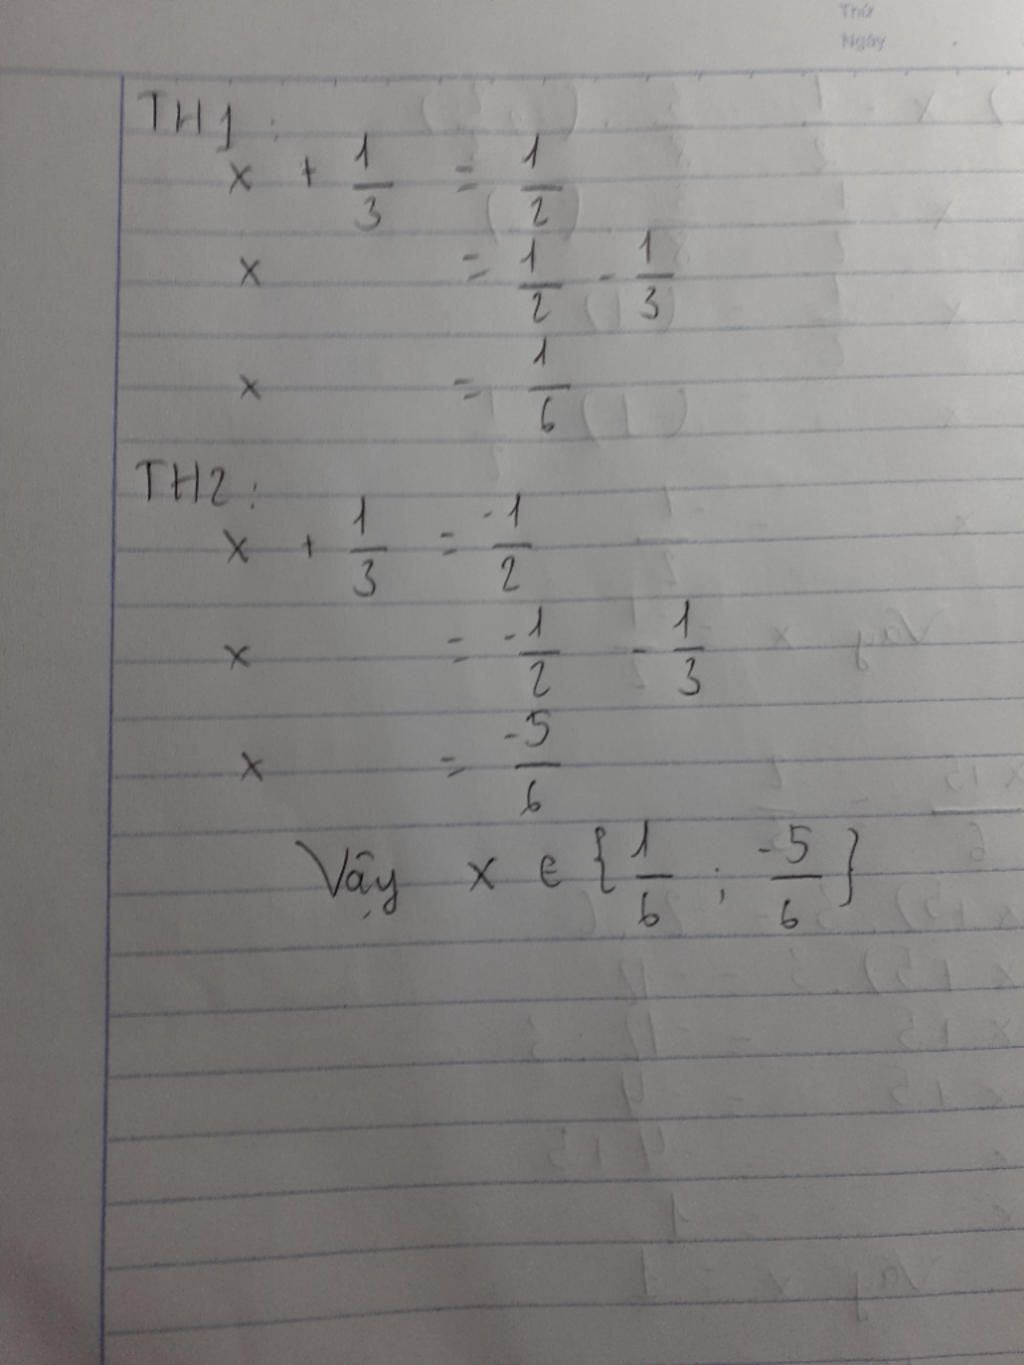 Thứ
Ngày
TH1:
x + 1/3 = 1/2
x = 1/2 - 1/3
x = 1/6
TH2:
x + 1/3 = -1/2
x = -1/2 - 1/3
x = -5/6
Vậy x ∈ {1/6 ; -5/6}